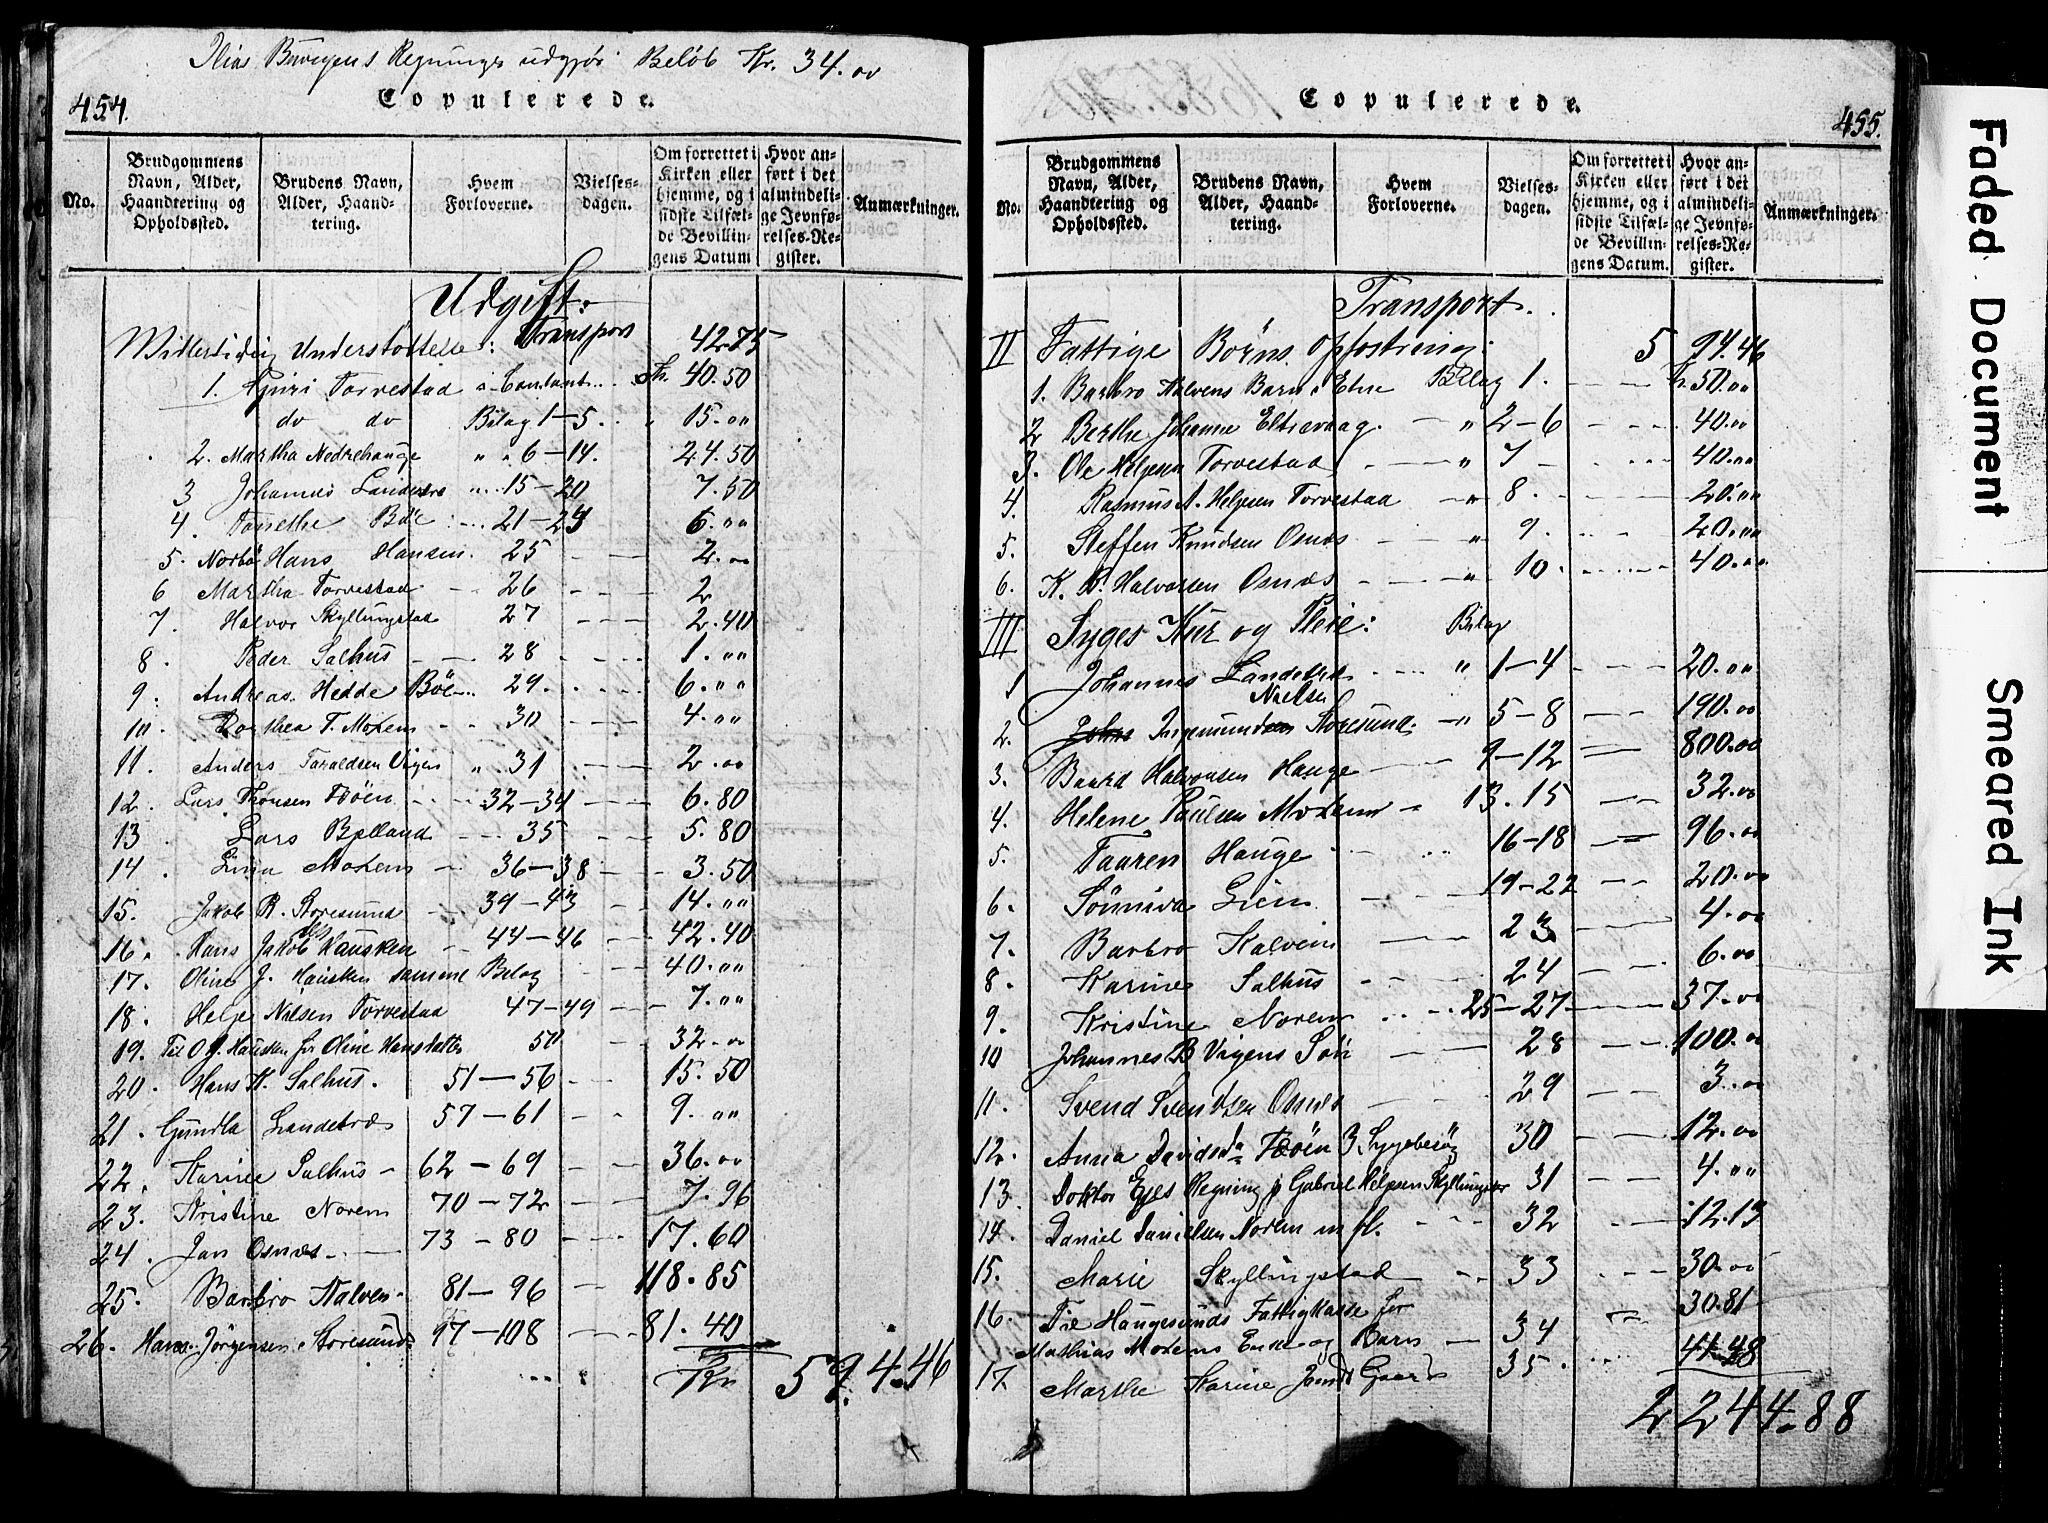 Elias Bårvigens Regnings udgjør Beløb Kr. 34.00
454.
Copulerede.
No.
Brudgommens Navn, Alder, Haandtering og Opholdssted.
Brudens Navn, Alder, Haandtering.
Hvem Forloverne.
Vielsesdagen.
Om forrettet i Kirken eller hjemme, og i sidste Tilfælde Bevillingens Datum
Hvor anført i det almindelige Jevnførelses-Register.
Anmærkninger.
Udgift:
Transport
Midlertidig Understøttelse: 42.75
1. Guri Torvestad i Contant. 40.50
do do Bilag 1-5. " 15.00
2. Martha Nedrehauge " " 6-14. 24.50
3 Johannes Landeræ " 15-20 7.50
4. Tarethe Böe 21-24 6.00
5. Norbö Hans Hansen 25 2.00
6 Martha Torvestad 26 2
7. Halvor Skyllingstad 27 2.40
8. Peder Salhus 28 1.00
9. Andreas Hedde Böe 29. 6.00
10. Dorthea T. Moxem 30 4.00
11. Anders Taraldsen Vigen " 31 2.00
12. Lars Thonsen Töen 32-34 6.80
13 Lars Bjelland 35 5.80
14. Lina Moxem 36-38 3.50
15. Jakob R. Storesund 39-43 14.00
16. Hans Jakob Hausken 44-46 42.40
17. Oline J. Hausken samme Bilag 40.00
18. Helge Nilsen Torvestad 47-49 7.00
19. Til O J. Hausken for Oline Hansdatter 50 32.00
20. Hans K. Salhus. 51-56 15.50
21. Gundla Landeræ 57-61 9.00
22. Karine Salhus 62-69 36.00
23. Kristine Norem 70-72 7.96
24. Jan Osnæs 73-80 17.60
25. Barbro Kalven 81-96 118.85
26. Hans Jörgensen Storesund 97-108 81.40
Kr 594.46
455.
Copulerede.
No.
Brudgommens Navn, Alder, Haandtering og Opholdssted.
Brudens Navn, Alder, Haandtering.
Hvem Forloverne.
Vielsesdagen.
Om forrettet i Kirken eller hjemme, og i sidste Tilfælde Bevillingens Datum.
Hvor anført i det almindelige Jevnførelses-Register.
Anmærkninger.
Transport. 594.46
II Fattige Börns Opfostring:
1. Barbro Kalvens Barn i Etne Bilag 1. 50.00
2 Berthe Johanne Eltravaag. " 2-6 40.00
3. Ole Helgesen Torvestad " 7 40.00
4. Rasmus A. Helgesen Torvestad " 8. 20.00
5. Steffen Knudsen Osnæs " 9. 20.00
6. K. B. Halvorsen Osnæs " 10. 40.00
III Syges Kur og Pleie: Bilag
1 Johannes Landeræ " 1-4 20.00
Nielse
2. Johs Ingemundsen Storesund. " 5-8 190.00
3. Baard Halvorsen Hauge 9-12 800.00
4. Helene Paulsen Moxem 13.15 32.00
5. Taaren Hauge 16-18 96.00
6. Sönniva Liem 19-22 20.00
7. Barbro Kalvein 23 4.00
8. Karine Salhus 24 6.00
9. Kristine Norem 25-27 37.00
10 Johannes B Vigens Sön 28 100.00
11. Svend Svendsen Osnæs 29 3.00
12. Anna Davidsda Töen 3 Sygebesög 30 12.00
13. Doktor Ejes Regning p Gabriel Helgesen Skyllingstad 31 4.00
14. Daniel Danielsen Norem m fl. 32 12.13
15. Marie Skyllingstad 33 30.00
16. Til Haugesunds Fattigkasse for 30.81
Mathias Moxems Enke og Barn 34
17. Marthe Karine Gaard 35. 41.48
2244.88
Faded Document
Smeared Ink